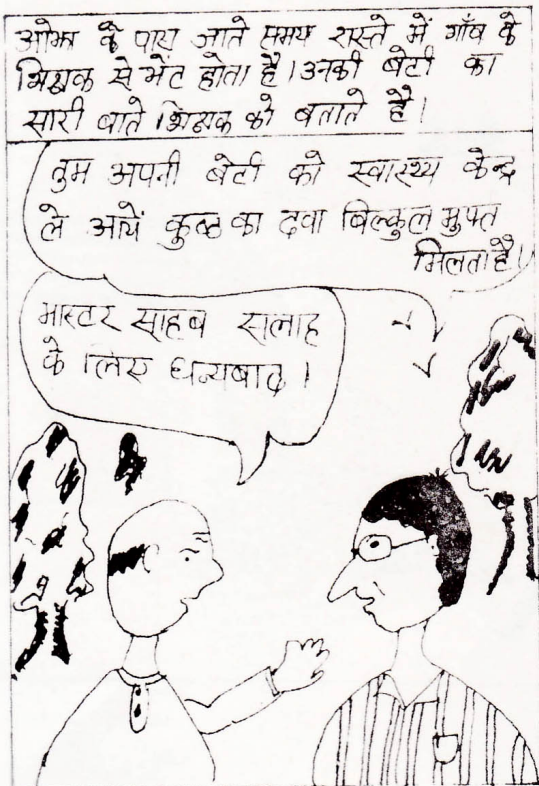 ओझा के पास जाते समय रास्ते में गाँव के
शिक्षक से भेंट होता है। उनकी बेटी का
सारी बाते शिक्षक को बताते है।
तुम अपनी बेटी को स्वास्थ्य केन्द्र
ले आयें कुष्ठ का दवा बिल्कुल मुफ्त
मिलता है।
मास्टर साहब सलाह
के लिए धन्यबाद।